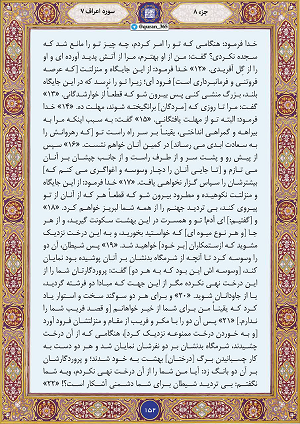 جزء ۸
سوره اعراف ۷
@quran_365
خدا فرمود: هنگامی که تو را امر کردم، چه چیز تو را مانع شد که
سجده نکردی؟ گفت: من از او بهترم، مرا از آتش پدید آورده ای و او
را از گل آفریدی. «۱۲» خدا فرمود: از این جایگاه و منزلت [که عرصه
فروتنی و فرمانبرداری است] فرود آی؛ زیرا تو را نرسد که در این جایگاه
بزرگ منشی کنی پس بیرون شو که قطعاً از خوارشدگانی. «۱۳»
گفت: مرا تا روزی که [مردگان] برانگیخته شوند، مهلت ده. «۱۴» خدا
فرمود: البته تو از مهلت یافتگانی. «۱۵» گفت: به سبب اینکه مرا به
بیراهه و گمراهی انداختی، یقیناً بر سر راه راست تو [که رهروانش را
به سعادت ابدی می رساند] در کمین آنان خواهم نشست. «۱۶» سپس
از پیش رو و پشت سر و از طرف راست و از جانب چپشان بر آنان
می تازم و [تا جایی آنان را دچار وسوسه و اغواگری می کنم که]
بیشترشان را سپاس گزار نخواهی یافت. «۱۷» خدا فرمود: از این جایگاه
و منزلتت نکوهیده و مطرود بیرون شو که قطعاً هر که از آنان از تو
پیروی کند، بی تردید جهنم را از همه شما لبریز خواهم کرد. «۱۸»
و [گفتیم:] ای آدم! تو و همسرت در این بهشت سکونت گیرید، و از هر
جا [و هر نوع میوه ای] که خواستید بخورید، و به این درخت نزدیک
مشوید که ازستمکاران [بر خود] خواهید شد. «۱۹» پس شیطان، آن دو
را وسوسه کرد تا آنچه از شرمگاه بدنشان بر آنان پوشیده بود نمایان
کند، [وسوسه اش این بود که به هر دو] گفت: پروردگارتان شما را از
این درخت نهی نکرده مگر از این جهت که مبادا دو فرشته گردید،
یا از جاودانان شوید. «۲۰» و برای هر دو سوگند سخت و استوار یاد
کرد که یقیناً من برای شما از خیر خواهانم [و قصد فریب شما را
ندارم.] «۲۱» پس آن دو را با مکر و فریب از مقام و منزلتشان فرود آورد
[و به خوردن درخت ممنوعه نزدیک کرد]. هنگامی که از آن درخت
چشیدند، شرمگاه بدنشان بر دو نفرشان نمایان شد و هر دو دست به
کار چسبانیدن برگ [درختان] بهشت به خود شدند؛ و پروردگارشان
بر آن دو بانگ زد: آیا من شما را از آن درخت نهی نکردم، و به شما
نگفتم: بی تردید شیطان برای شما دشمنی آشکار است؟! «۲۲»
۱۵۲